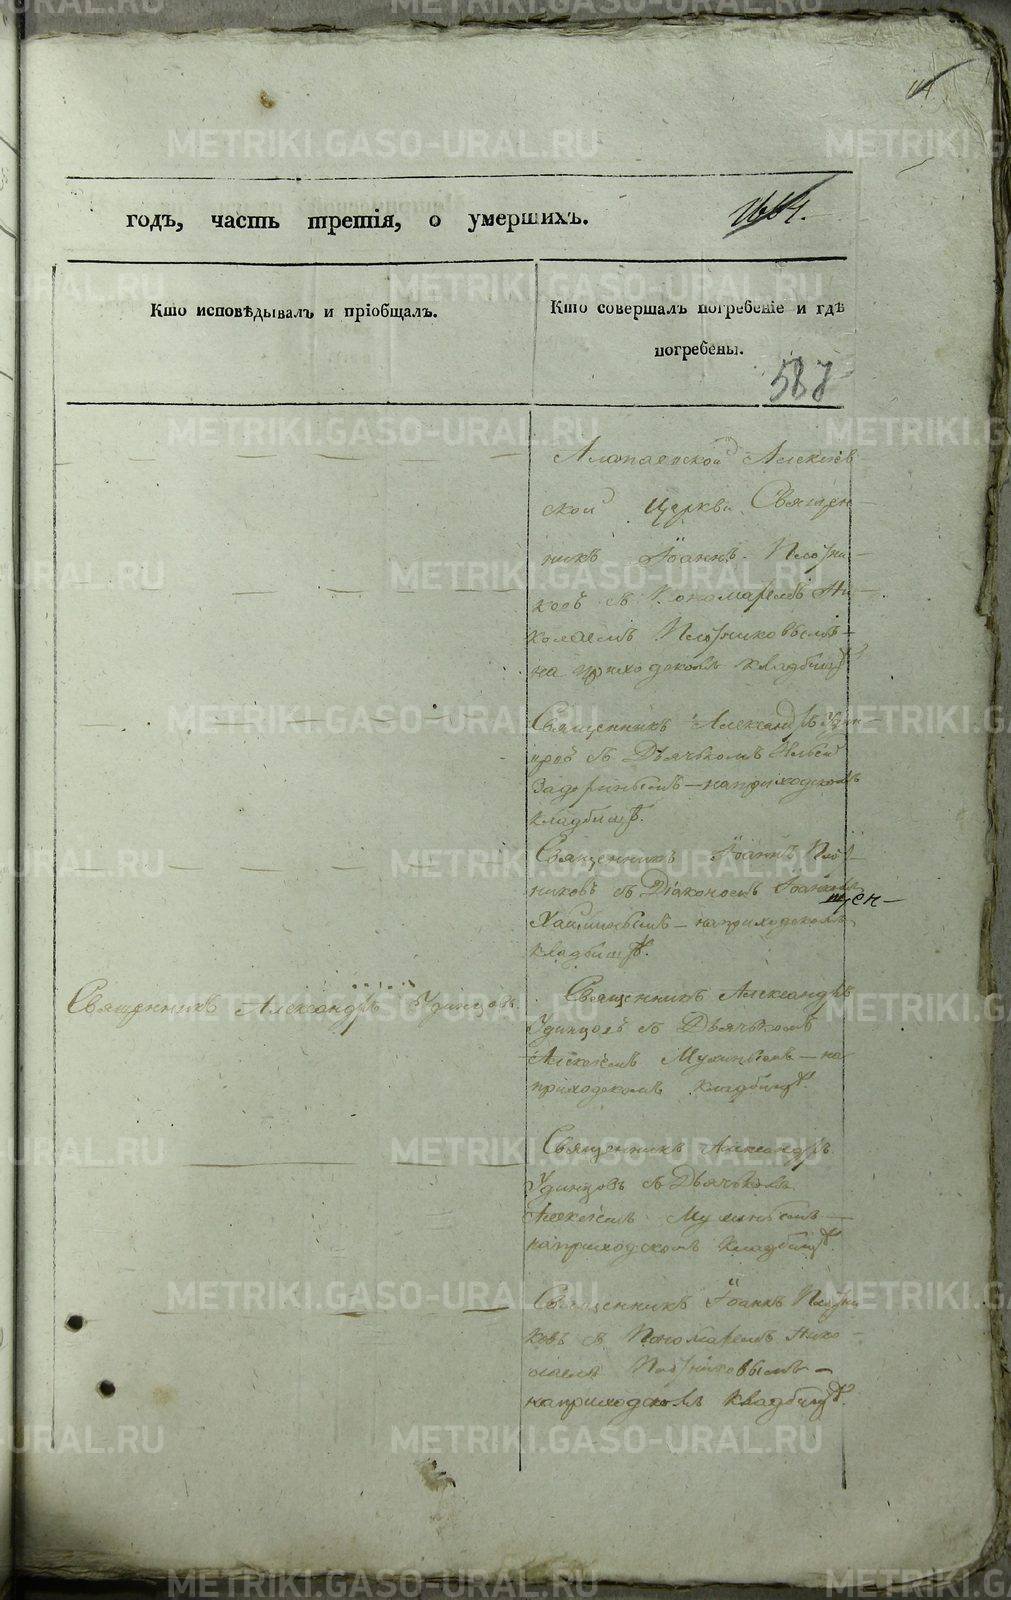 годъ, часть третія, о умершихъ.
Кто исповѣдывалъ и пріобщалъ.
Кто совершалъ погребеніе и гдѣ
погребены.
587
Алапаевской Алексіев
ской Церкви Священ-
никъ Іоаннъ Плотни-
ковъ съ Пономаремъ Ни-
колаемъ Плотниковымъ-
на приходскомъ кладбищѣ
Священникъ Александръ Удин-
цовъ съ Дьячькомъ
на приходскомъ
кладбищѣ.
Священникъ Іоаннъ Плот-
никовъ съ Діакономъ Іоанномъ
на приходскомъ
кладбищѣ.
Священникъ Александръ Удинцовъ
Священникъ Александръ
Удинцовъ съ Дьячькомъ
Алексіемъ Мухинымъ-на
приходскомъ кладбищѣ.
Священникъ Александръ
Удинцовъ съ Дьячькомъ
Алексіемъ Мухинымъ-
на приходскомъ кладбищѣ
Священникъ Іоаннъ Плотни
ковъ съ Пономаремъ Нико-
лаемъ Плотниковымъ-
на приходскомъ кладбищѣ.
METRIKI.GASO-URAL.RU